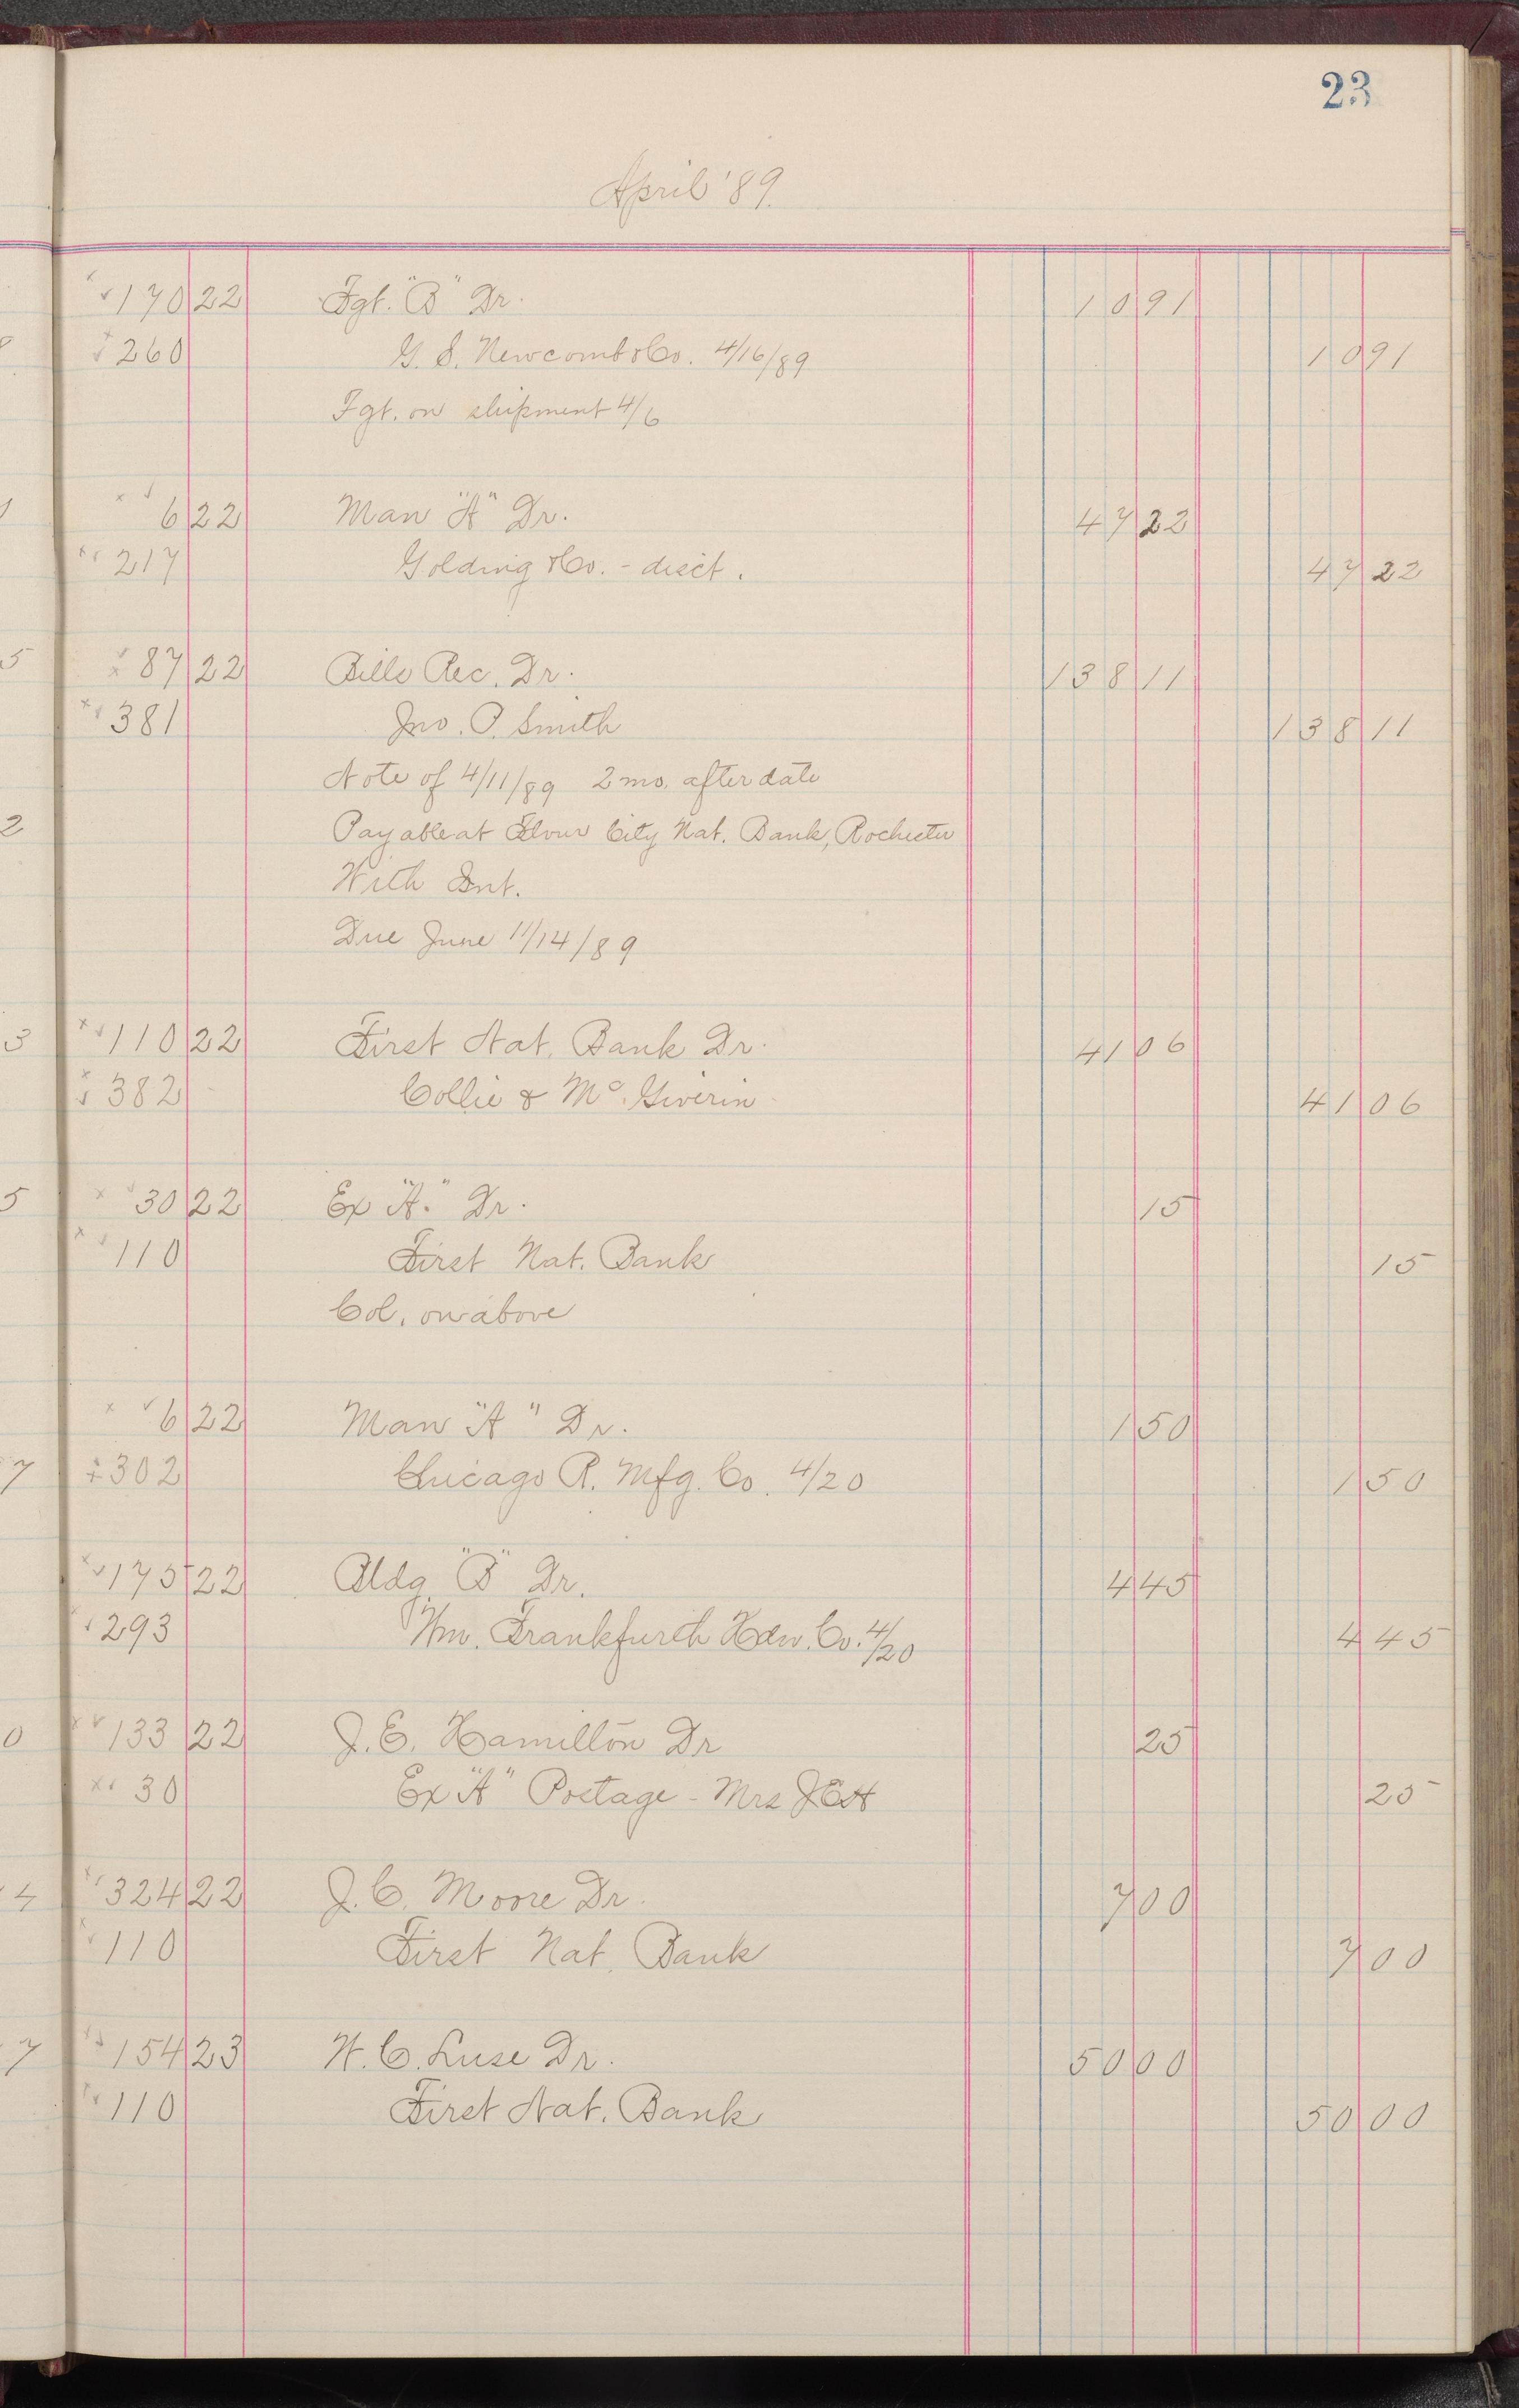 23
April '89.
170 22 Fgt. "B" Dr. 10 91
260 G. S. Newcomb & Co. 4/16/89 10 91
Fgt. on shipment 4/6
6 22 Man "A" Dr. 47 22
217 Golding & Co. - disct. 47 22
87 22 Bills Rec. Dr. 138 11
381 Jno. P. Smith 138 11
Note of 4/11/89 2 mo. after date
Payable at Flour City Nat. Bank, Rochester
With Int.
Due June 11/14/89
110 22 First Nat. Bank Dr. 41 06
382 Collie & Mc. Giverin 41 06
30 22 Ex "A." Dr. 15
110 First Nat. Bank 15
Col. on above
6 22 Man "A" Dr. 1 50
302 Chicago R. Mfg. Co. 4/20 1 50
175 22 Bldg "B" Dr. 4 45
293 Wm. Frankfurth Hdw. Co. 4/20 4 45
133 22 J. E. Hamilton Dr 25
30 Ex "A" Postage - Mrs JEH 25
324 22 J. C. Moore Dr. 7 00
110 First Nat. Bank 7 00
154 23 W. C. Luse Dr. 50 00
110 First Nat. Bank 50 00